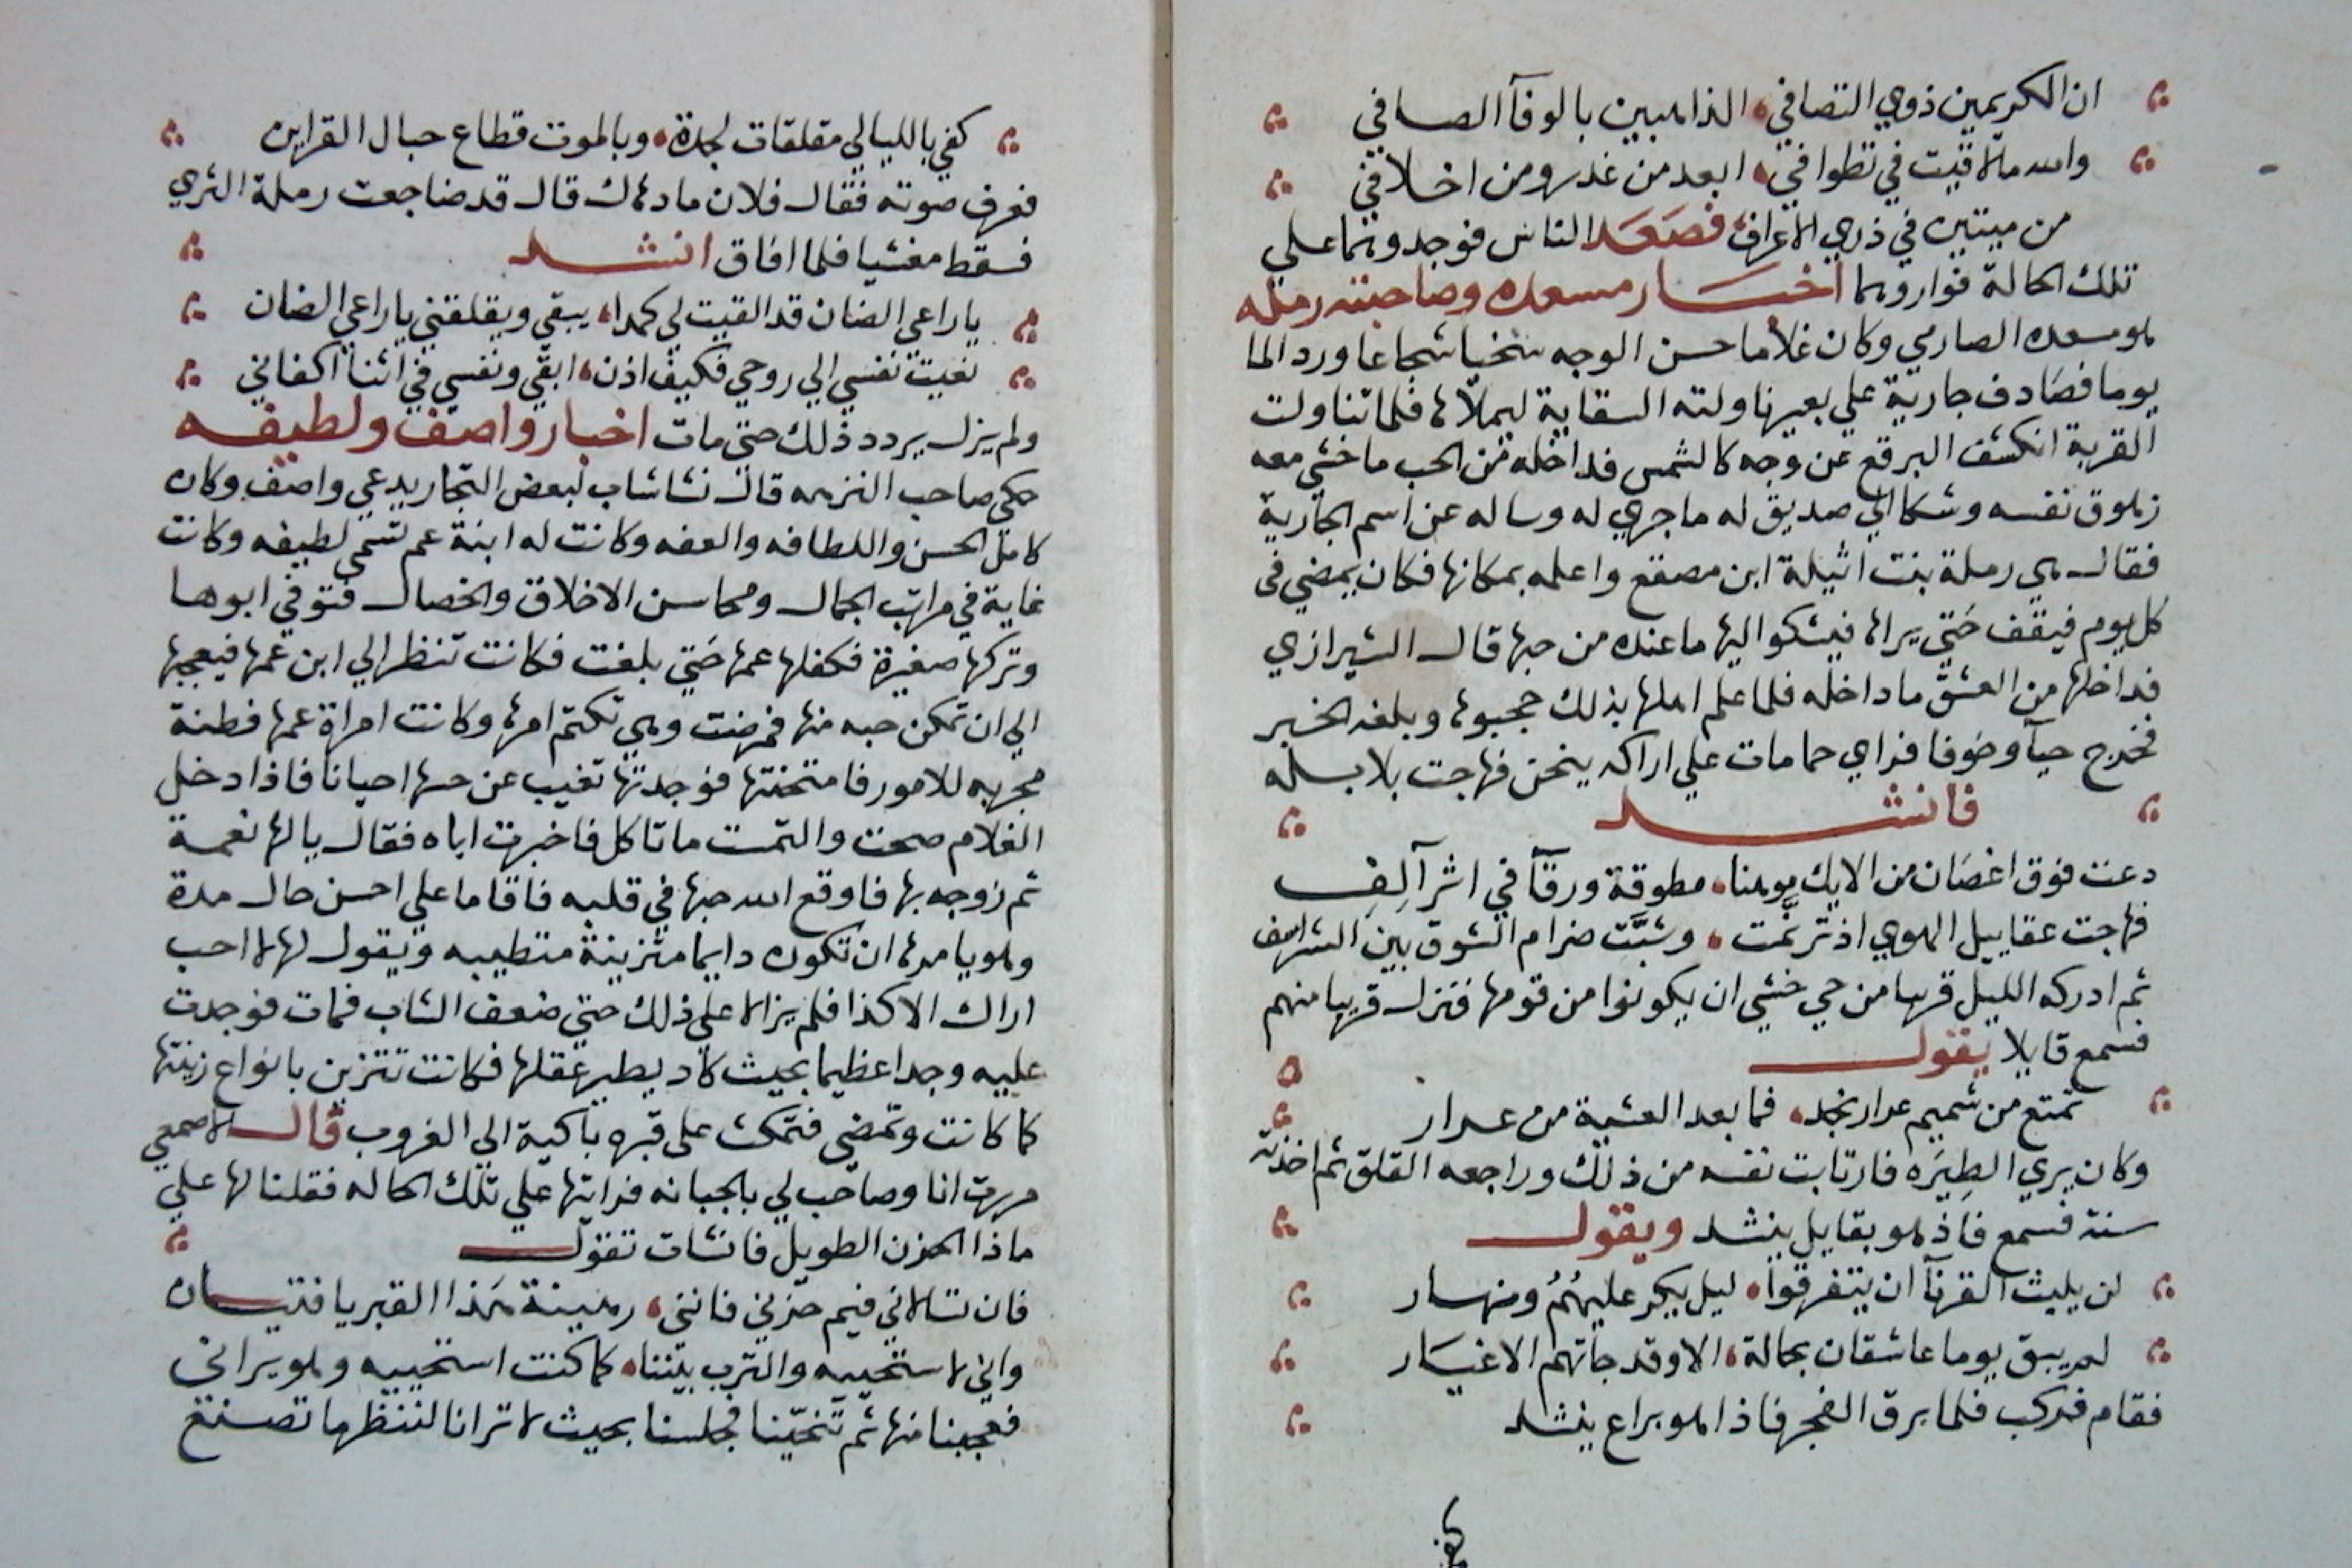 ان الكريمين ذوي التصافي الذاهبين بالوفآ الصافي
والله مالاقيت في تطوافي ابعد من غدر ومن اخلافي
من ميتين في ذري الاعراف فصَعَد الناس فوجدوهما علي
تلك الحالة فواروهما اخبَار مسعده وصاحبته رمله
هو مسعده الصارمي وكان غلاما حسن الوجه سخيا شجاعا ورد الما
يوما فصَادف جارية علي بعير ناولته السقاية ليملاها فلما تناولت
القربة انكشف البرقع عن وجه كالشمس فداخله من الحب ما خشي معه
زهوق نفسه وشكا الي صديق له ما جري له وساله عن اسم الجارية
فقال هي رملة بنت اثيلة ابن مصقع واعلمه بمكانها فكان يمضي في
كل يوم فيقف حَتي يراها فيشكوا اليها ما عنده من حبها قال الشيرازي
فداخلها من العشق ما داخله فلما علم اهلها بذلك حجبوها وبلغه الخبر
فخرج حيآ وخوفا فراي حمامات علي اراكه ينحن فهاجت بلابله
فانشد
دعت فوق اغصَان من الايك موهنا مطوقة ورقآ في اثر آلِف
فهاجت عقابيل الهوي اذ ترنَّمت وشبَّت ضرام الشوق بين الشراسف
ثم ادركه الليل قريبا من حي خشي ان يكونوا من قومها فنزل قريبا منهم
فسمع قايلا يقول
تمتع من شميم عرار نجد فما بعد العشية من عرار
وكان يري الطِيَره فارتابت نفسه من ذلك وراجعه القلق ثم اخذته
سنة فسمع فاذ هو بقايل ينشد ويقول
لن يلبث القرنآ ان يتفرقوا ليل يكر عليهُمُ ونهار
لم يبق يوما عاشقان بحالة الا وقد جآتهم الاغيَار
فقام فركب فلما برق الفجر فاذا هو براع ينشد
كفي
كفي بالليالي مقلقات لجدة وبالموت قطاع حبال القراين
فعرف صوته فقال فلان ما دهاك قال قد ضاجعت رملة الثري
فسقط مغشيا فلما افاق انشد
ياراعي الضان قد القيت لي كمدا يبقي ويقلقني ياراعي الضان
نعيت نفسي الي روحي فكيف اذن ابقي ونفسي في اثنآ اكفاني
ولم يزل يردد ذلك حتي مات اخبار واصف ولطيفه
حكي صاحب النزهه قال نشا شاب لبعض التجار يدعي واصف وكان
كامل الحسن واللطافه والعفه وكانت له ابنة عم تسمي لطيفه وكانت
غاية في مراتب الجمال ومحاسن الاخلاق والخصال فتوفي ابوها
وتركها صغيرة فكفلها عمها حَتي بلغت فكانت تنظر الي ابن عمها فيعجبها
الي ان تمكن حبه منها فمرضت وهي تكتم امرها وكانت امراة عمها فطنة
مجربه للامور فامتحنتها فوجدتها تغيب عن حسها احيانا فاذا دخل
الغلام صحت والتمست ما تاكل فاخبرت اباه فقال يالها نعمة
ثم زوجه بها فاوقع الله حبها في قلبه فاقاما علي احسن حال مدة
وهو يامرها ان تكون دايما متزينة متطيبه ويقول لها لا احب
اراك الا كذا فلم يزالا علي ذلك حتي ضعف الشاب فمات فوجدت
عليه وجدا عظيما بحيث كاد يطير عقلها فكانت تتزين بانواع زينتها
كما كانت وتمضي فتمكث علي قبره باكية الي الغروب قال الاصمعي
مررت انا وصاحب لي بالجبانه فراتها علي تلك الحاله فقلنا لها علي
ماذا الحزن الطويل فانشات تقول
فان تسالاني فيم حزني فانني رهينة هَذا القبر يافتيان
واني لاستحييه والترب بيننا كما كنت استحييه وهو يراني
فعجبنا منها ثم تنحيّنا فجلسنا بحيث لا ترانا لننظر ما تصنع